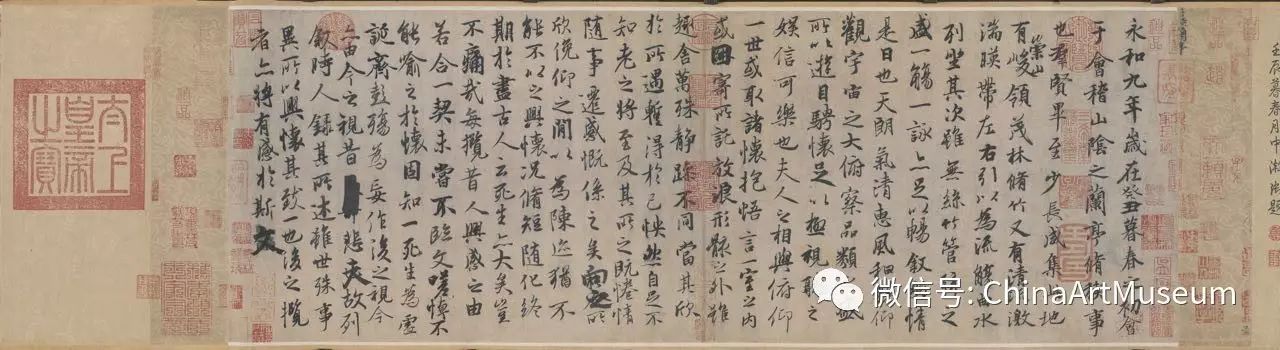 永和九年歲在癸丑暮春之初會
于會稽山陰之蘭亭脩稧事
也羣賢畢至少長咸集此地
有崇山峻領茂林脩竹又有清流激
湍暎帶左右引以為流觴曲水
列坐其次雖無絲竹管弦之
盛一觴一詠亦足以暢敘幽情
是日也天朗氣清惠風和暢仰
觀宇宙之大俯察品類之盛
所以遊目騁懷足以極視聽之
娛信可樂也夫人之相與俯仰
一世或取諸懷抱悟言一室之內
或因寄所託放浪形骸之外雖
趣舍萬殊靜躁不同當其欣
於所遇暫得於己怏然自足不
知老之將至及其所之既惓情
隨事遷感慨係之矣向之所
欣俛仰之閒以為陳迹猶不
能不以之興懷況脩短隨化終
期於盡古人云死生亦大矣豈
不痛哉每攬昔人興感之由
若合一契未嘗不臨文嗟悼不
能喻之於懷固知一死生為虛
誕齊彭殤為妄作後之視今
亦由今之視昔悲夫故列
敘時人錄其所述雖世殊事
異所以興懷其致一也後之攬
者亦將有感於斯文
太上皇帝之寶
微信号: ChinaArtMuseum